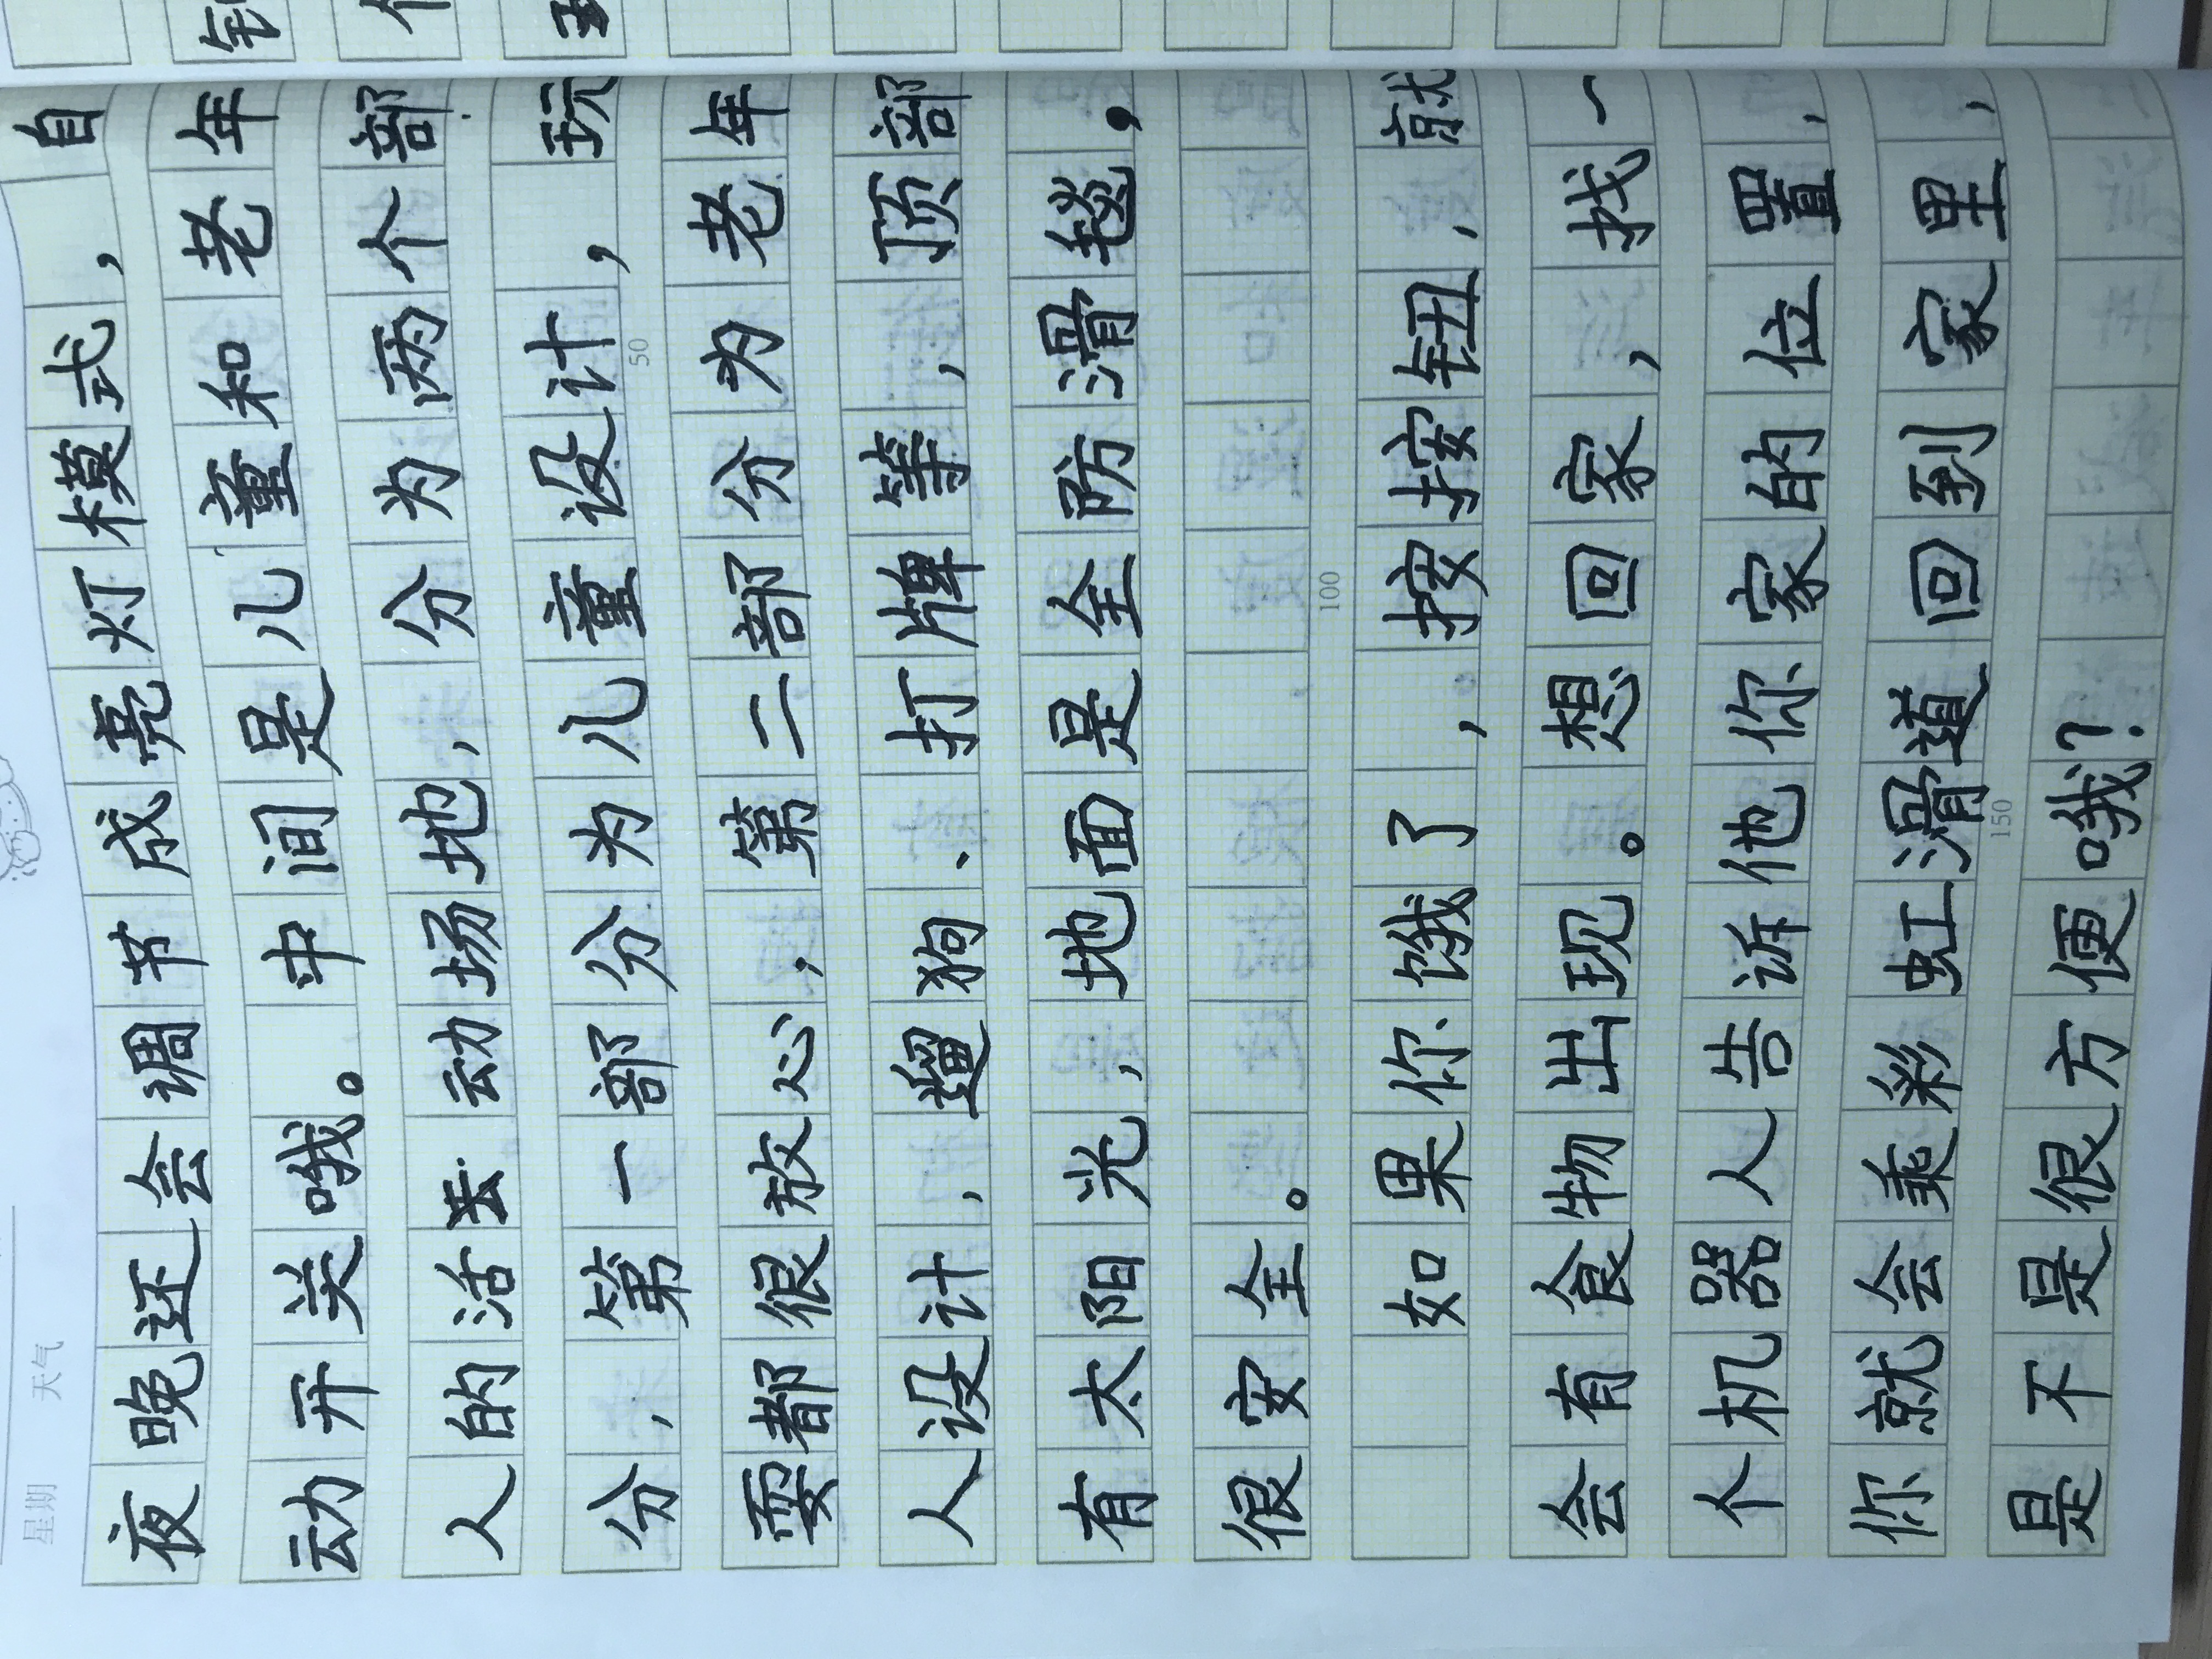 星期 天气
夜晚还会调节成亮灯模式，自
动开关哦。中间是儿童和老年
人的活动场地，分为两个部
分，第一部分为儿童设计，玩
50
耍都很放心，第二部分为老年
人设计，遛狗、打牌等，顶部
有太阳光，地面是全防滑毯，
很安全。
100
如果你饿了，按按钮，就
会有食物出现。想回家，找一
个机器人告诉他你家的位置，
你就会乘彩虹滑道回到家里，
150
是不是很方便哦？